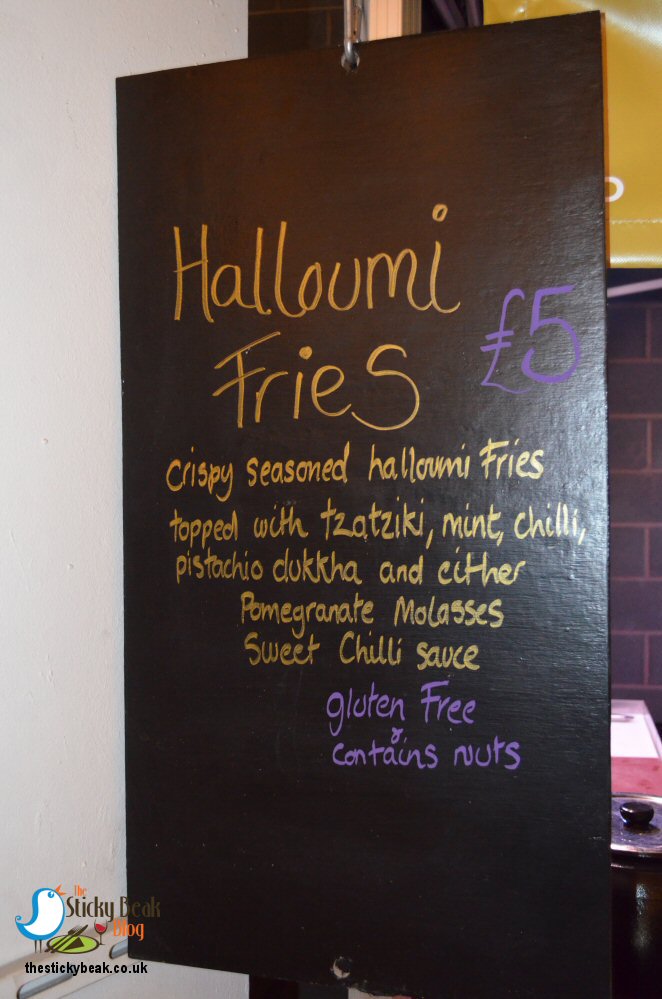 Halloumi
Fries
£5
Crispy seasoned halloumi Fries
topped with tzatziki, mint, chilli,
pistachio dukkha and either
Pomegranate Molasses
Sweet Chilli sauce
gluten Free
&
contains nuts
The
Sticky Beak
Blog
thestickybeak.co.uk